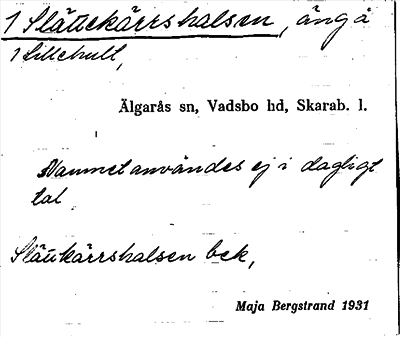 1 Slättekärrshalsen, äng å
1 Lillehult,
Älgarås sn, Vadsbo hd, Skarab. l.
Namnet användes ej i dagligt
tal
Slättkärrshalsen bek,
Maja Bergstrand 1931